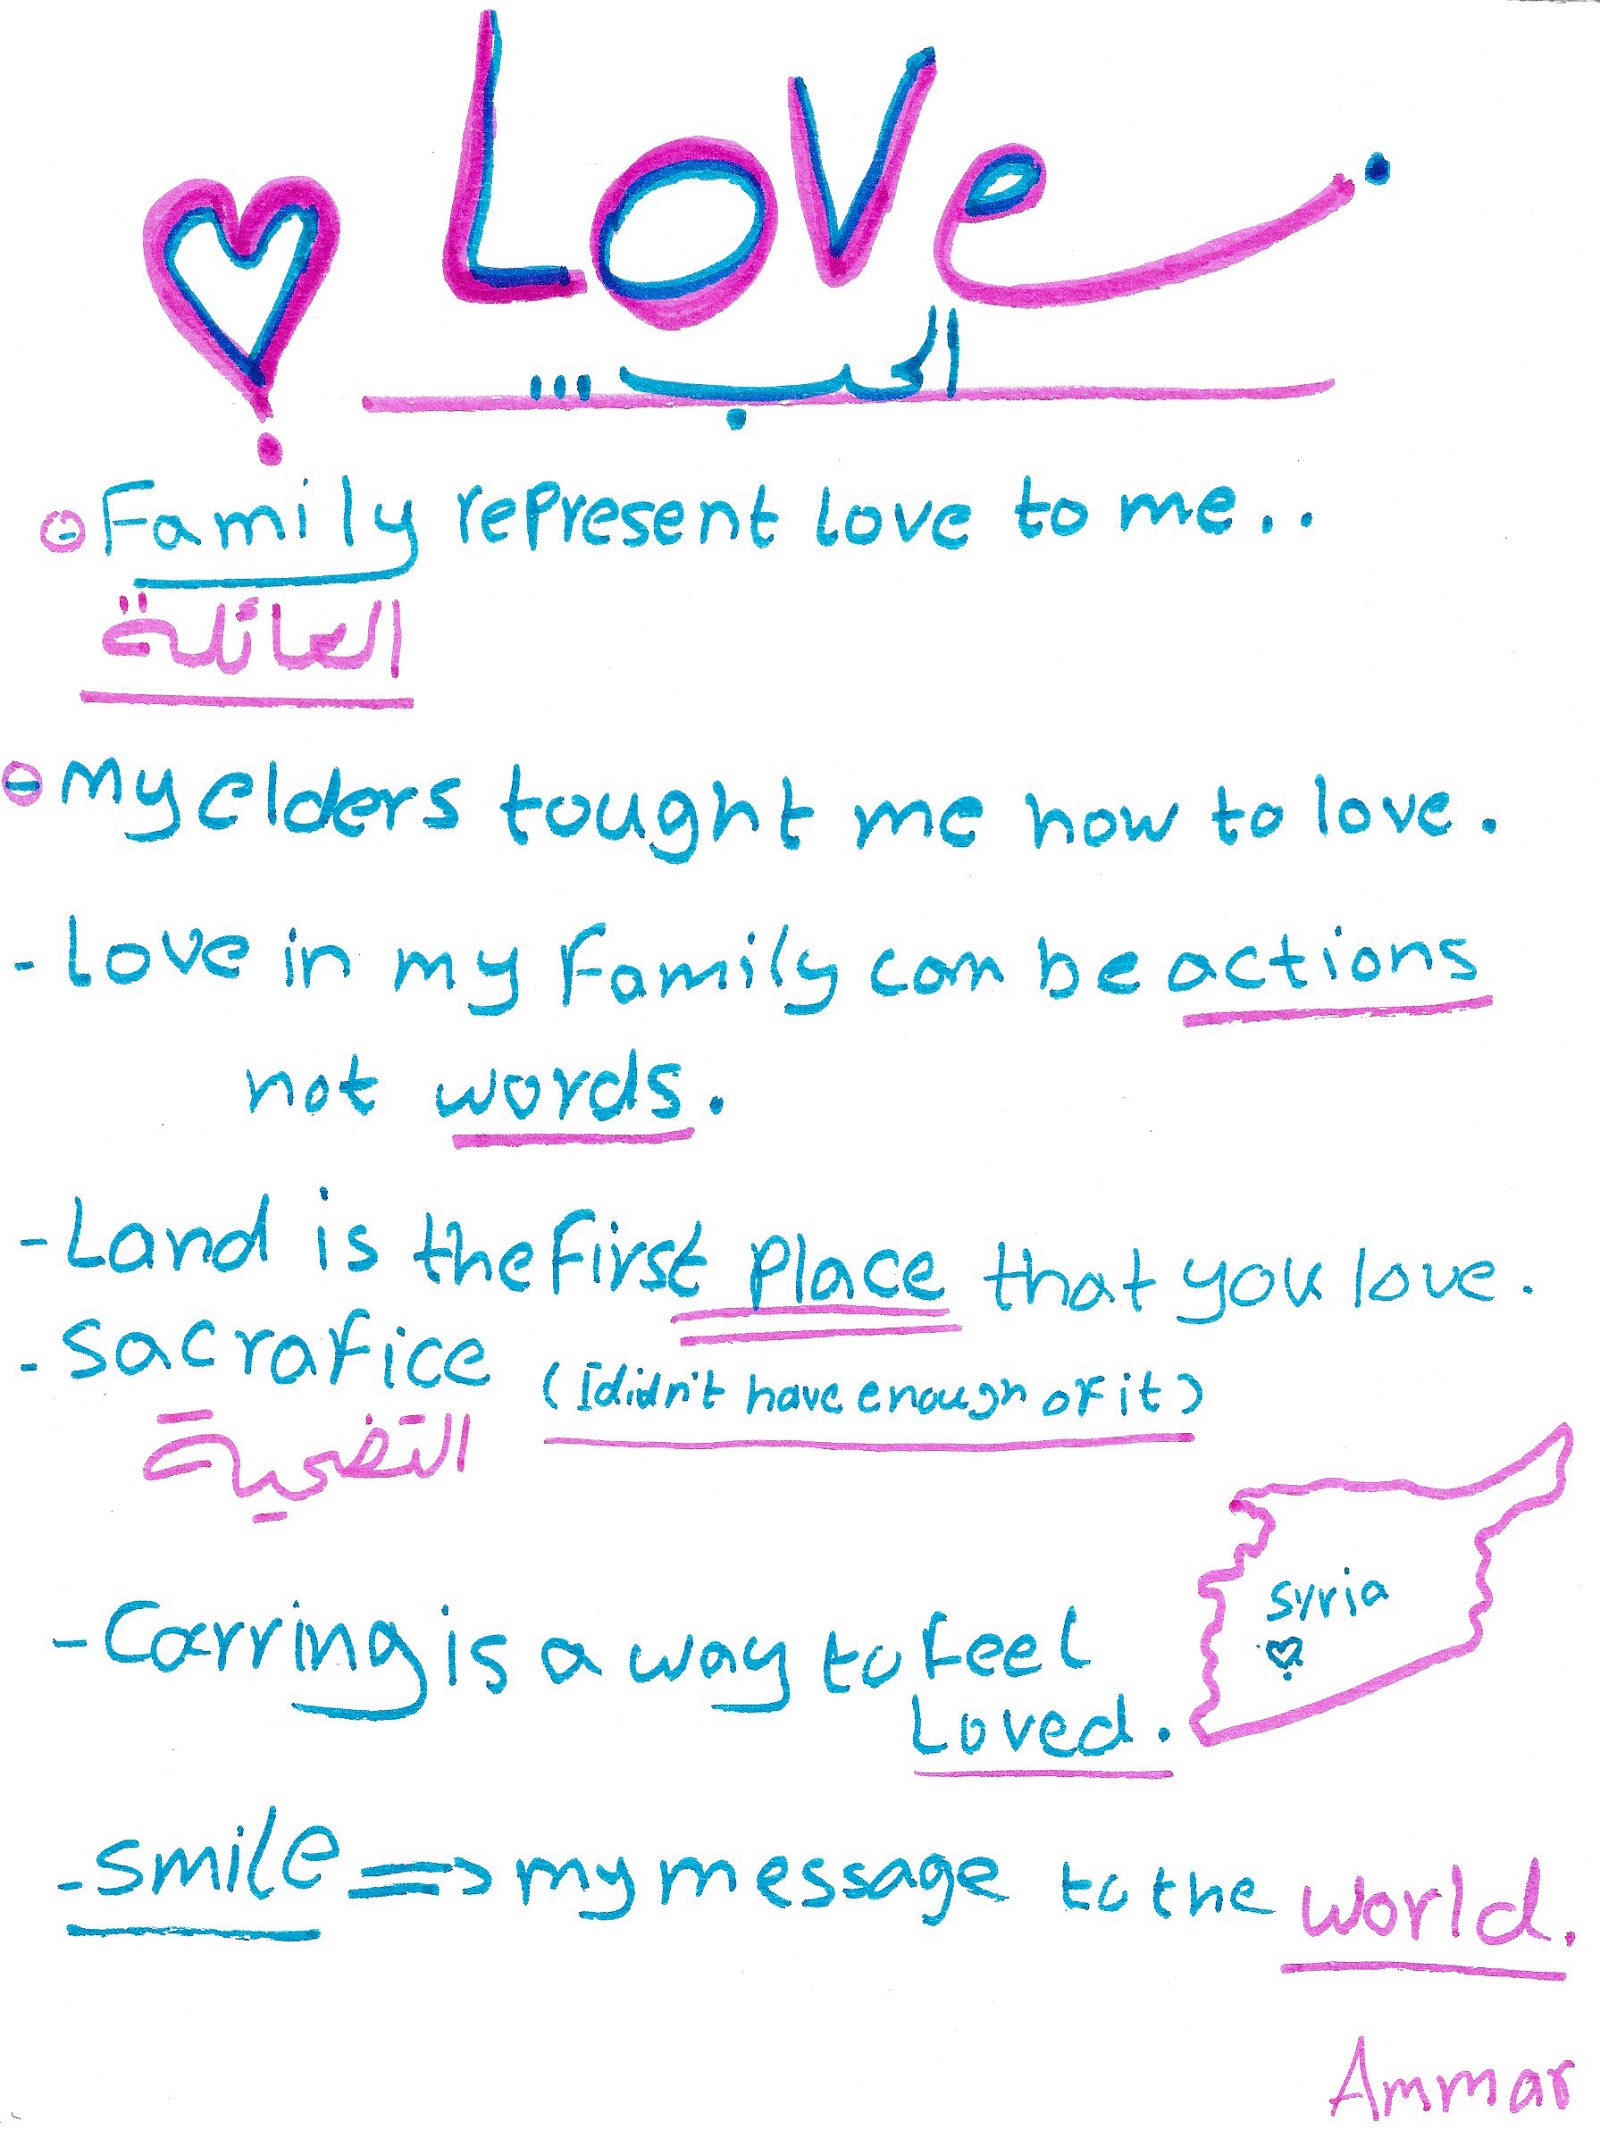 Love.
الحب...
Family represent love to me..
العائلة
My elders tought me how to love.
- Love in my family can be actions
not words.
- Land is the first place that you love.
- Sacrafice (I didn't have enough of it)
التضحية
Syria
- Carring is a way to feel
Loved.
- Smile => my message to the world.
Ammar